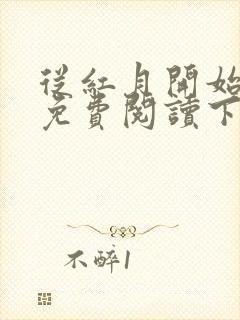 從紅月開始
免費閱讀下
不醉1